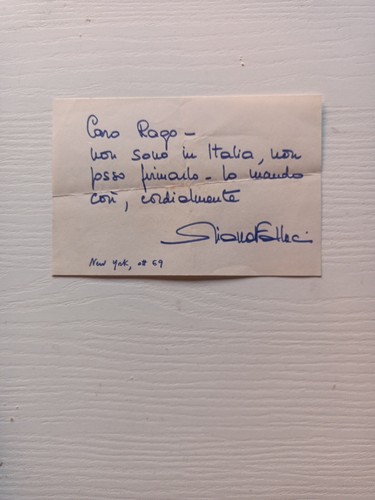 Caro Rago -
non sono in Italia, non
posso firmarlo - lo mando
così, cordialmente
Oriana Fallaci
New York, 08 69